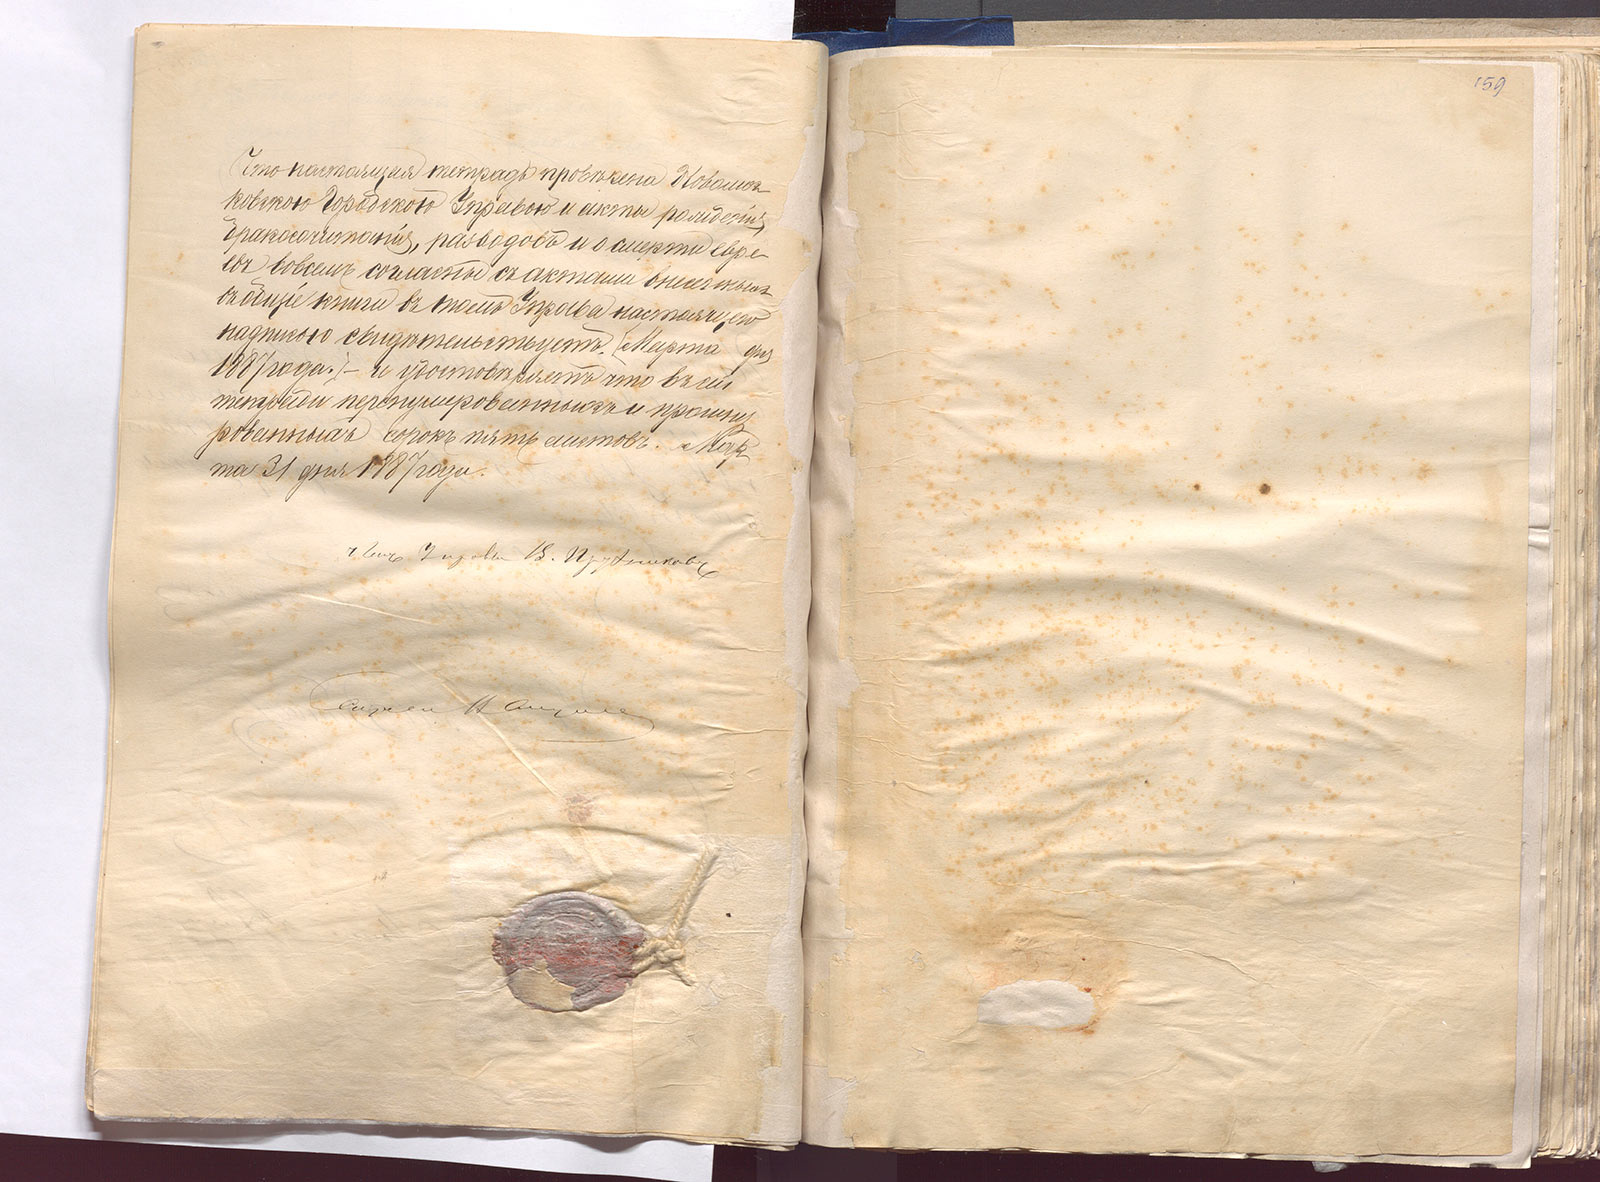 Что настоящая тетрадь провѣрена Новомос-
ковскою Городскою Управою и акты рождений,
бракосочитаній, разводовъ и о смерти евре-
евъ вовсемъ согласны съ актами внесенными
въ общіе книги въ томъ Управа настоящею
надписью свидѣтельствуетъ. (Марта дня
1887 года.) – и удостовѣряетъ что въ сей
тетради перенумерованныхъ и прошну
рованныхъ сорокъ пять листовъ. Мар
та 31 дня 1887 года.
Член Управы В. Прудниковъ
159